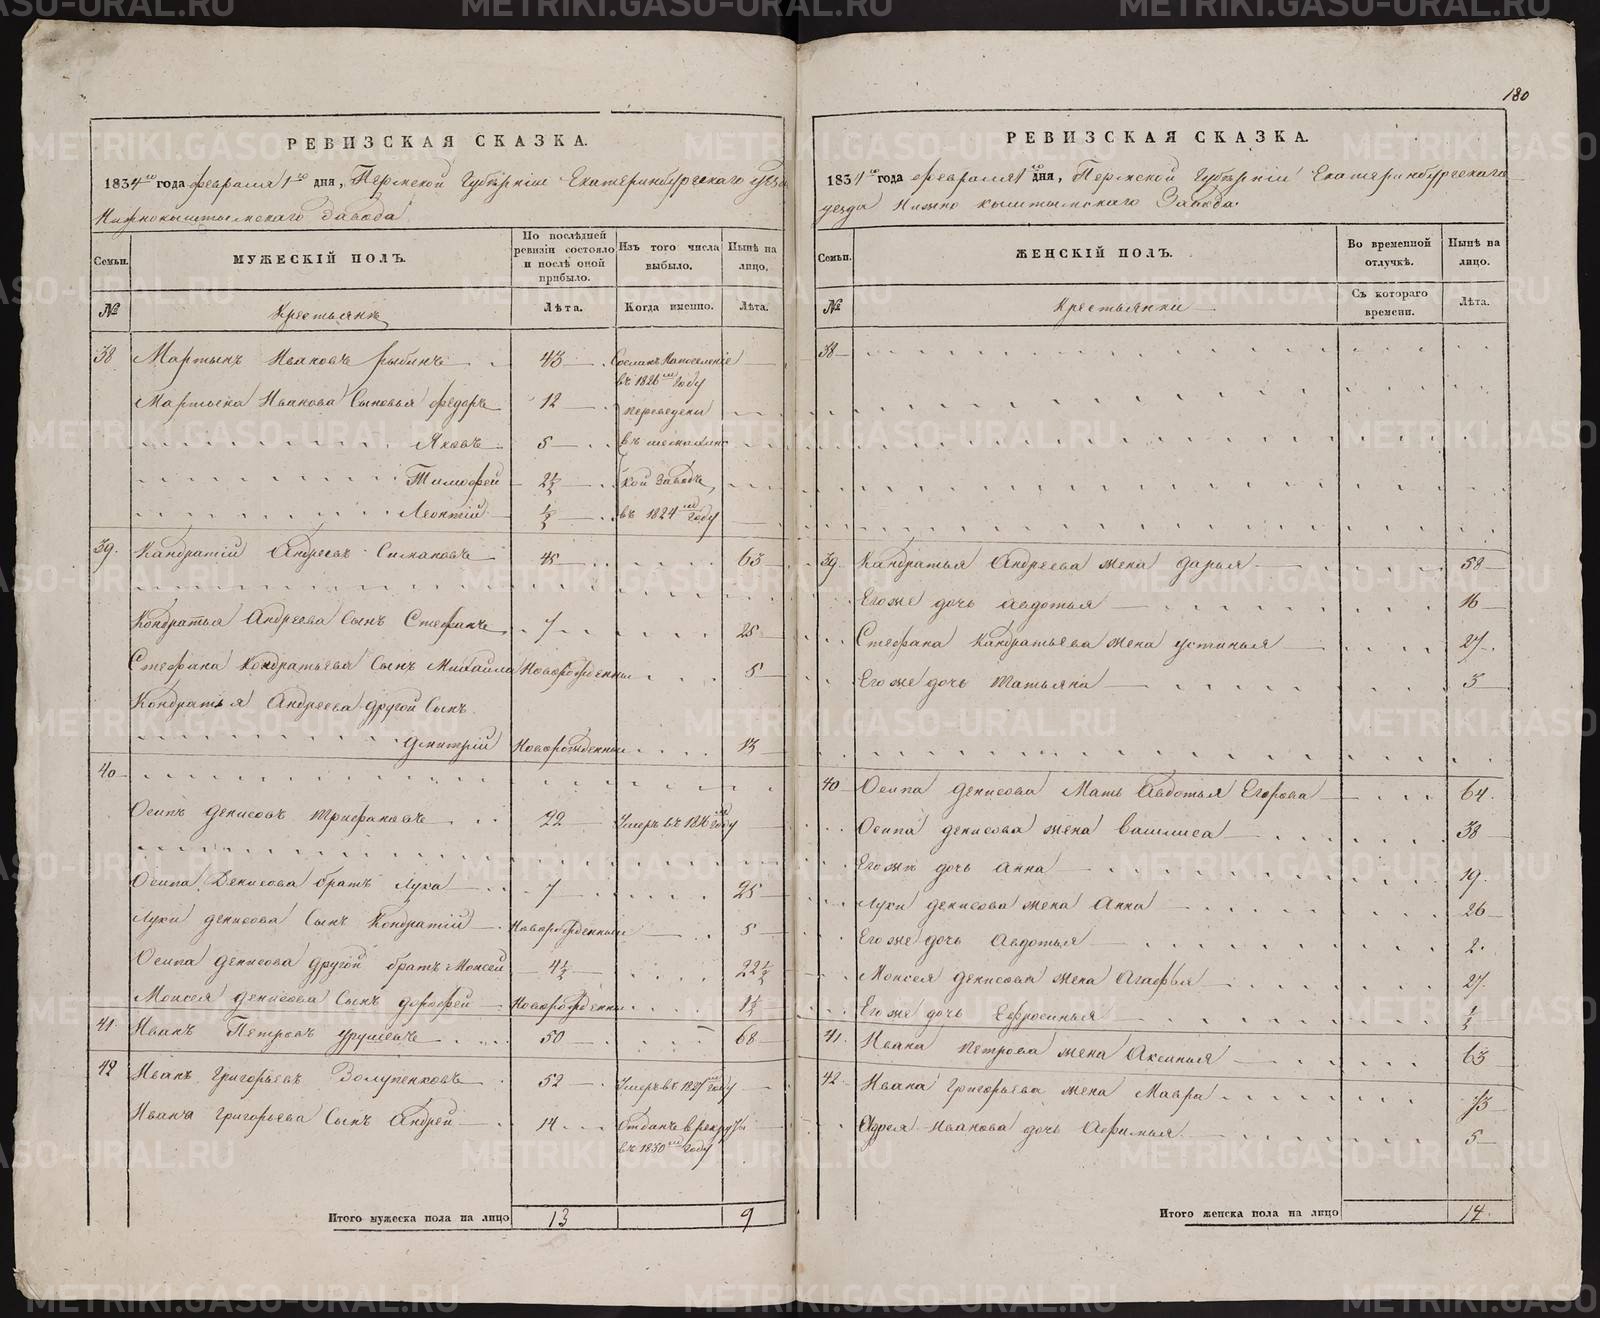 180
РЕВИЗСКАЯ СКАЗКА.
1834го года февраля 1го дня, Пермской Губѣрніи Екатеринбургскаго уезда
Нижнокыштымскаго Завода
Семьи.
МУЖЕСКІЙ ПОЛЪ.
По послѣдней ревизіи состояло и послѣ оной прибыло.
Изъ того числа выбыло.
Нынѣ на лицо.
№
Крестьянъ
Лѣта.
Когда именно.
Лѣта.
38 Мартынъ Ивановъ Рыбинъ 43 Сосланъ Напоселеніе
въ 1826мъ Году
Мартына Иванова Сыновья Федоръ 12 переведены
Яковъ 5
Тимофей 2½ кой Заводъ,
Леонтій ½ въ 1824мъ Году
39. Кандратій Андреевъ Симановъ 45 63
Кондратья Андреева Сынъ Стефанъ 7 25
Стефана Кондратьева Сынъ Михаила Новорожденны 5
Кондратья Андреева другой Сынъ
Дмитрій Новорожденны 13
40
Осипъ Денисовъ Трифановъ 22 Умеръ въ 1816мъ Году
Осипа Денисова братъ Лука 7 25
Луки Денисова Сынъ Кондратій Новорожденный 5
Осипа Денисова другой братъ Моисей 4½ 22½
Моисея Денисова Сынъ Дорофей Новорожденны 1½
41. Иванъ Петровъ 50 68
42 Иванъ Григорьевъ Золупенковъ 52 Умеръ въ 1827мъ Году
Ивана Григорьева Сынъ Андрей 14 Отданъ в рекруты
въ 1830мъ Году
Итого мужеска пола на лицо 13 9
РЕВИЗСКАЯ СКАЗКА.
1834го года февраля 1го дня, Пермской Губѣрніи Екатеринбургскаго
уезда Нижно кыштымскаго Завода.
Семьи.
ЖЕНСКІЙ ПОЛЪ.
Во временной отлучкѣ.
Нынѣ на лицо.
№
Крестьянки
Съ котораго времени.
Лѣта.
38
39. Кандратья Андреева жена Дарья 58
Егоже дочь Авдотья 16
Стефана Кандратьева жена Устинья 27.
Егоже дочь Татьяна 3
40 Осипа Денисова Мать Авдотья Егорова 64.
Осипа Денисова жена Василиса 38
Егоже дочь Анна 19.
Луки Денисова жена Анна 26
Егоже дочь Авдотья 2.
Моисея Денисова жена Агафья 27.
Егоже дочь Ефросинья ½
41. Ивана Петрова жена Аксинья 63
42. Ивана Григорьева жена Мавра 73
Андрея Иванова дочь Афимья 5
Итого женска пола на лицо 14.
METRIKI.GASO-URAL.RU